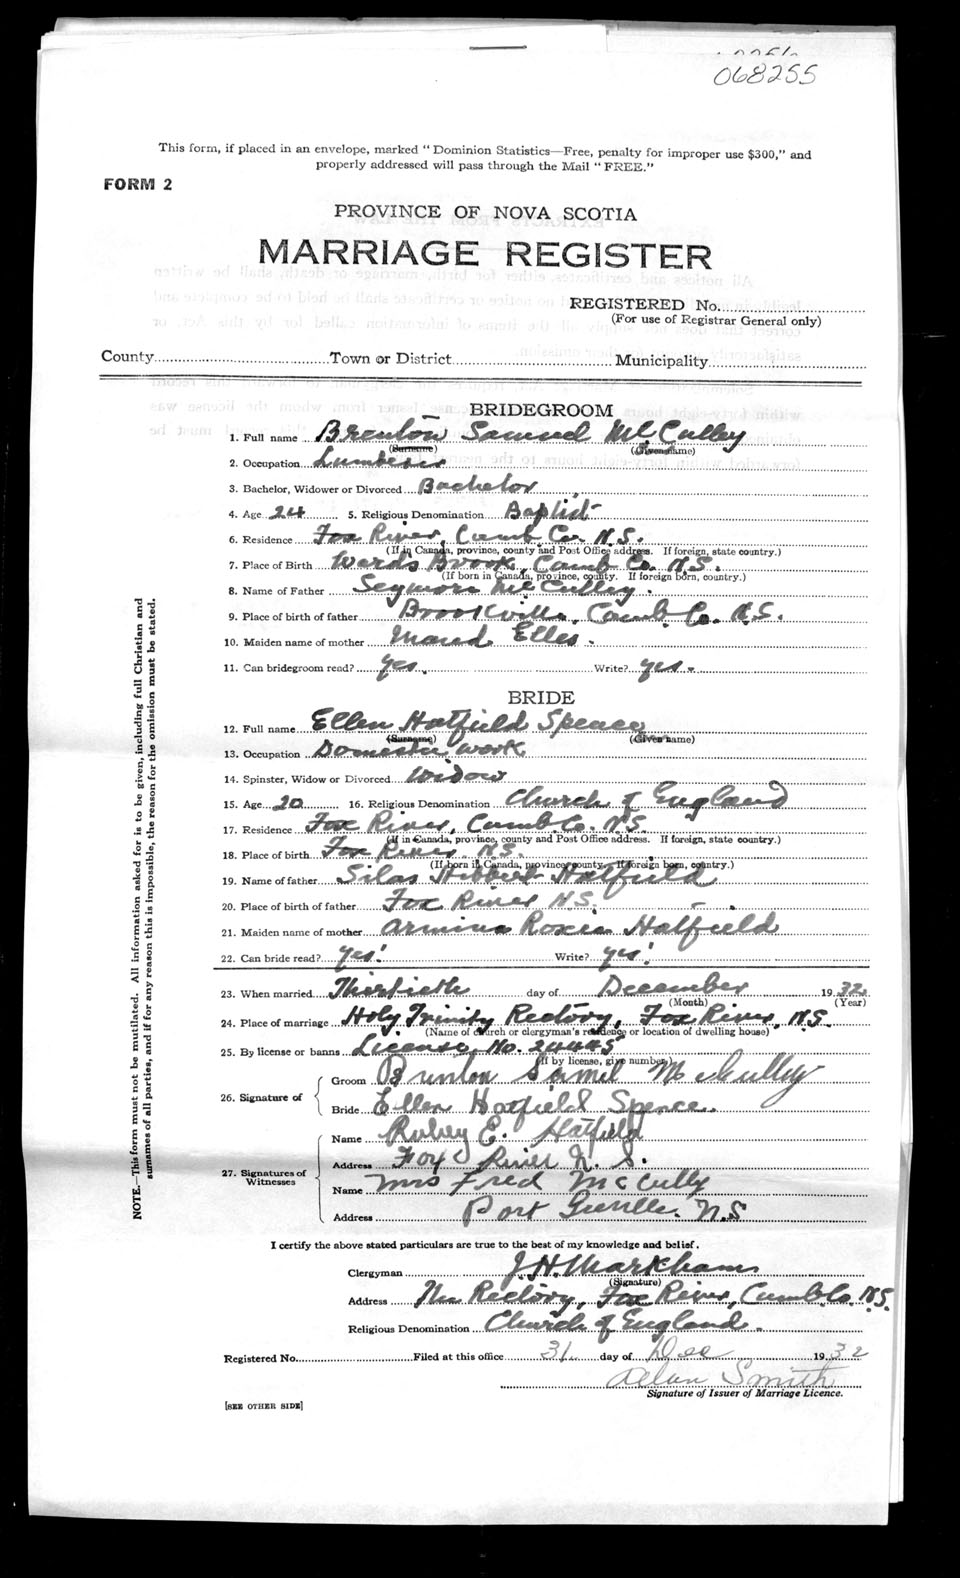 068255
This form, if placed in an envelope, marked "Dominion Statistics—Free, penalty for improper use $300," and
properly addressed will pass through the Mail "FREE."
FORM 2
PROVINCE OF NOVA SCOTIA
MARRIAGE REGISTER
REGISTERED No.
(For use of Registrar General only)
County Town or District Municipality
BRIDEGROOM
1. Full name Brenton Samuel McCulley
(Surname) (Given name)
2. Occupation
3. Bachelor, Widower or Divorced Bachelor
4. Age 24 5. Religious Denomination Baptist
6. Residence Fox River, Cumb. Co. N.S.
(If in Canada, province, county and Post Office address. If foreign, state country.)
7. Place of Birth Wards Brook, Cumb. Co. N.S.
(If born in Canada, province, county. If foreign born, country.)
8. Name of Father Seymore McCulley.
9. Place of birth of father Brookville, Cumb. Co. N.S.
10. Maiden name of mother Maud Elles -
11. Can bridegroom read? yes. Write? yes -
BRIDE
12. Full name Ellen Hatfield Spence
(Surname) (Given name)
13. Occupation Domestic work
14. Spinster, Widow or Divorced Widow
15. Age 20 16. Religious Denomination Church of England
17. Residence Fox River, Cumb. Co. N.S.
(If in Canada, province, county and Post Office address. If foreign, state country.)
18. Place of birth Fox River N.S.
(If born in Canada, province, county. If foreign born, country.)
19. Name of father Silas Hibbert Hatfield
20. Place of birth of father Fox River N.S.
21. Maiden name of mother Armina Roxie Hatfield
22. Can bride read? yes! Write? yes!
23. When married Thirtieth day of December 1932
(Month) (Year)
24. Place of marriage Holy Trinity Rectory, Fox River, N.S.
(Name of church or clergyman's residence or location of dwelling house)
25. By license or banns License, No. 24445
(If by license, give number)
26. Signature of
Groom Brenton Samel McCully
Bride Ellen Hatfield Spence.
27. Signatures of Witnesses
Name Rubey E. Hatfield
Address Fox River N.S.
Name Mrs Fred McCully
Address Port Greville N.S
I certify the above stated particulars are true to the best of my knowledge and belief.
Clergyman J.H. Markham
(Signature)
Address The Rectory, Fox River, Cumb. Co. N.S.
Religious Denomination Church of England.
Registered No. Filed at this office 31 day of Dec 1932
Alan Smith
Signature of Issuer of Marriage Licence.
[SEE OTHER SIDE]
NOTE.—This form must not be mutilated. All information asked for is to be given, including full Christian and
surnames of all parties, and if for any reason this is impossible, the reason for the omission must be stated.